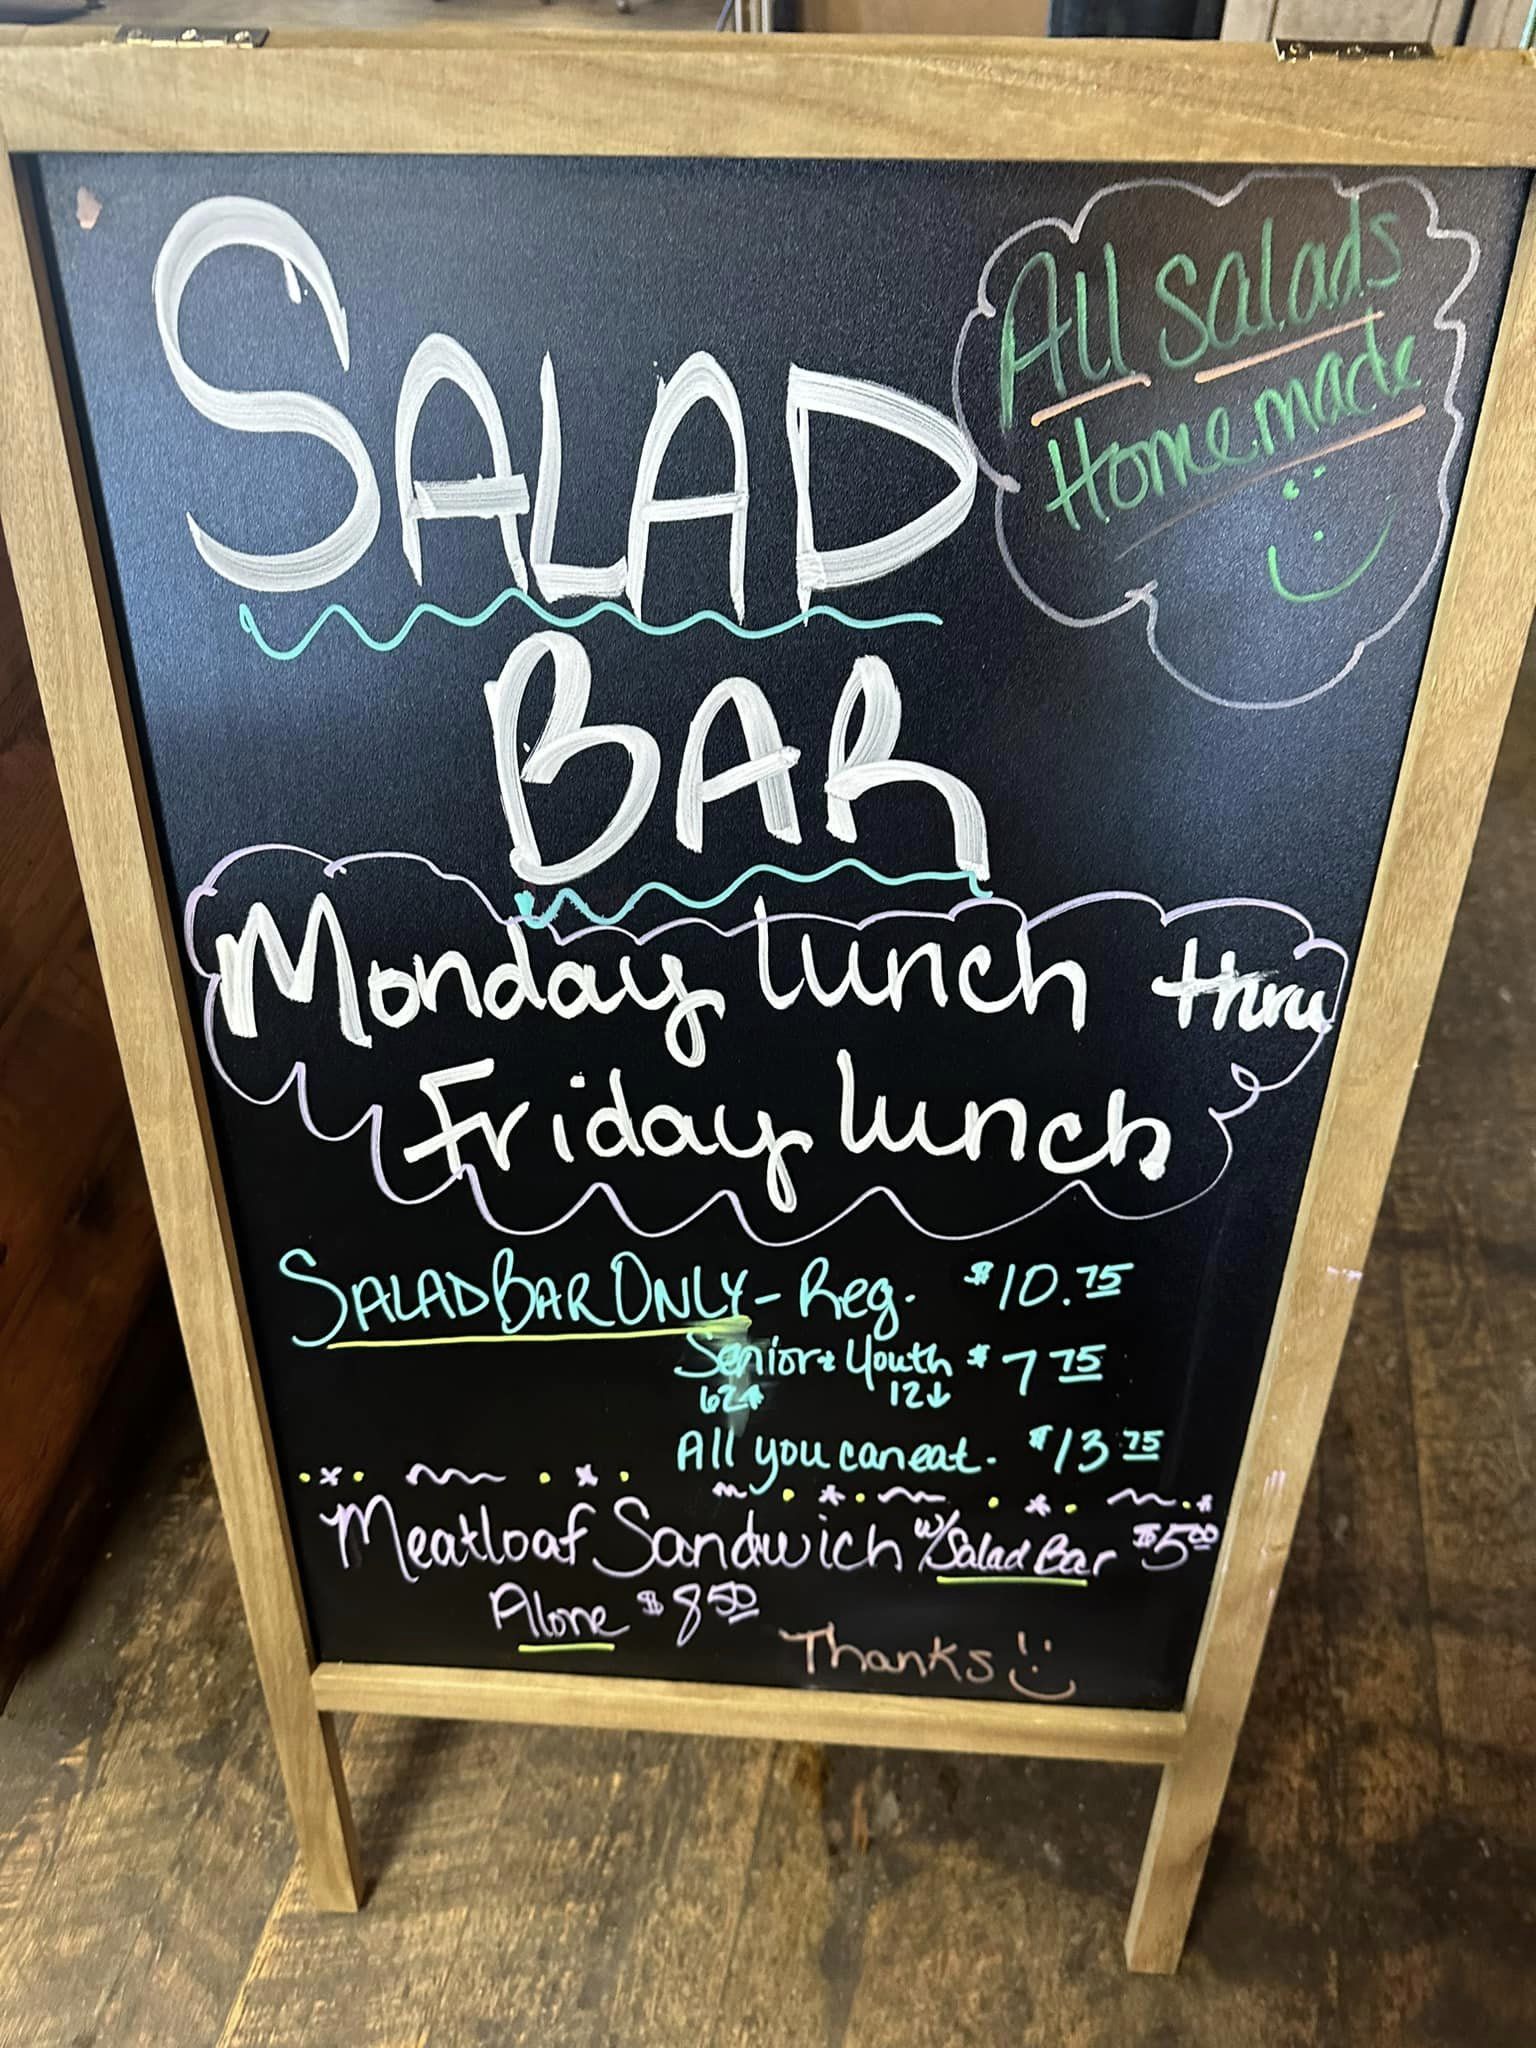 SALAD
BAR
All Salads
Homemade
Monday lunch thru
Friday lunch
SALAD BAR ONLY - Reg. $10.75
Senior & Youth $7 75
62↑ 12↓
All you can eat. $13 75
Meatloaf Sandwich w/ Salad Bar $5 00
Alone $8 50
Thanks